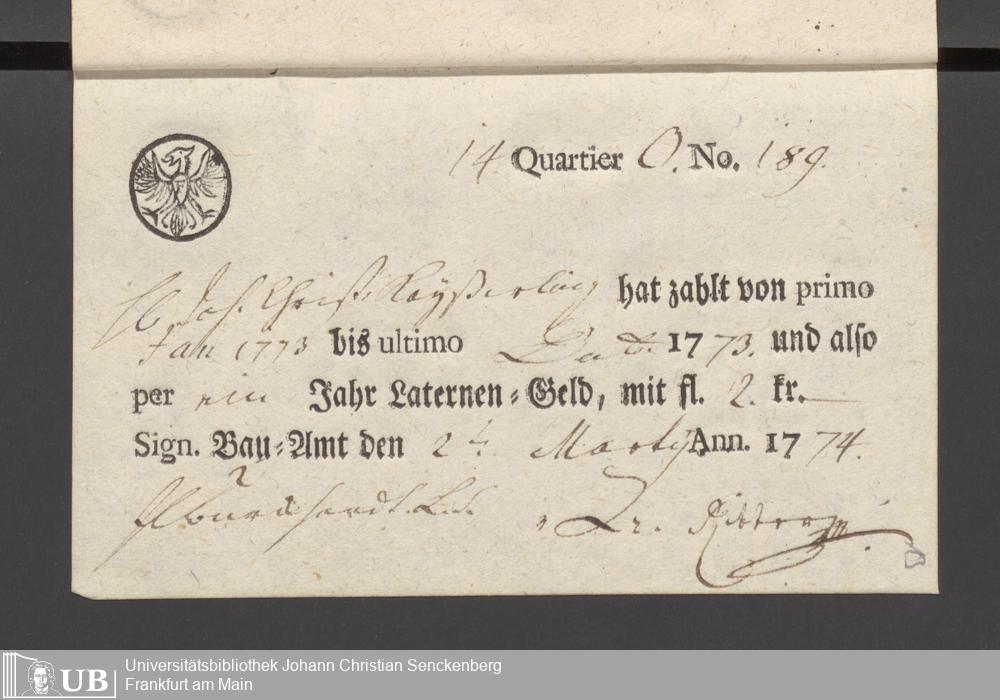 14 Quartier O. No. 189.
Joh. Christ. Kayßerling hat zahlt von primo
Jan 1773 bis ultimo 1773. und also
per ein Jahr Laternen-Geld, mit fl. 2. kr.
Sign. Bau-Amt den 2 t. Marty Ann. 1774.
Ritter
UB Universitätsbibliothek Johann Christian Senckenberg
Frankfurt am Main